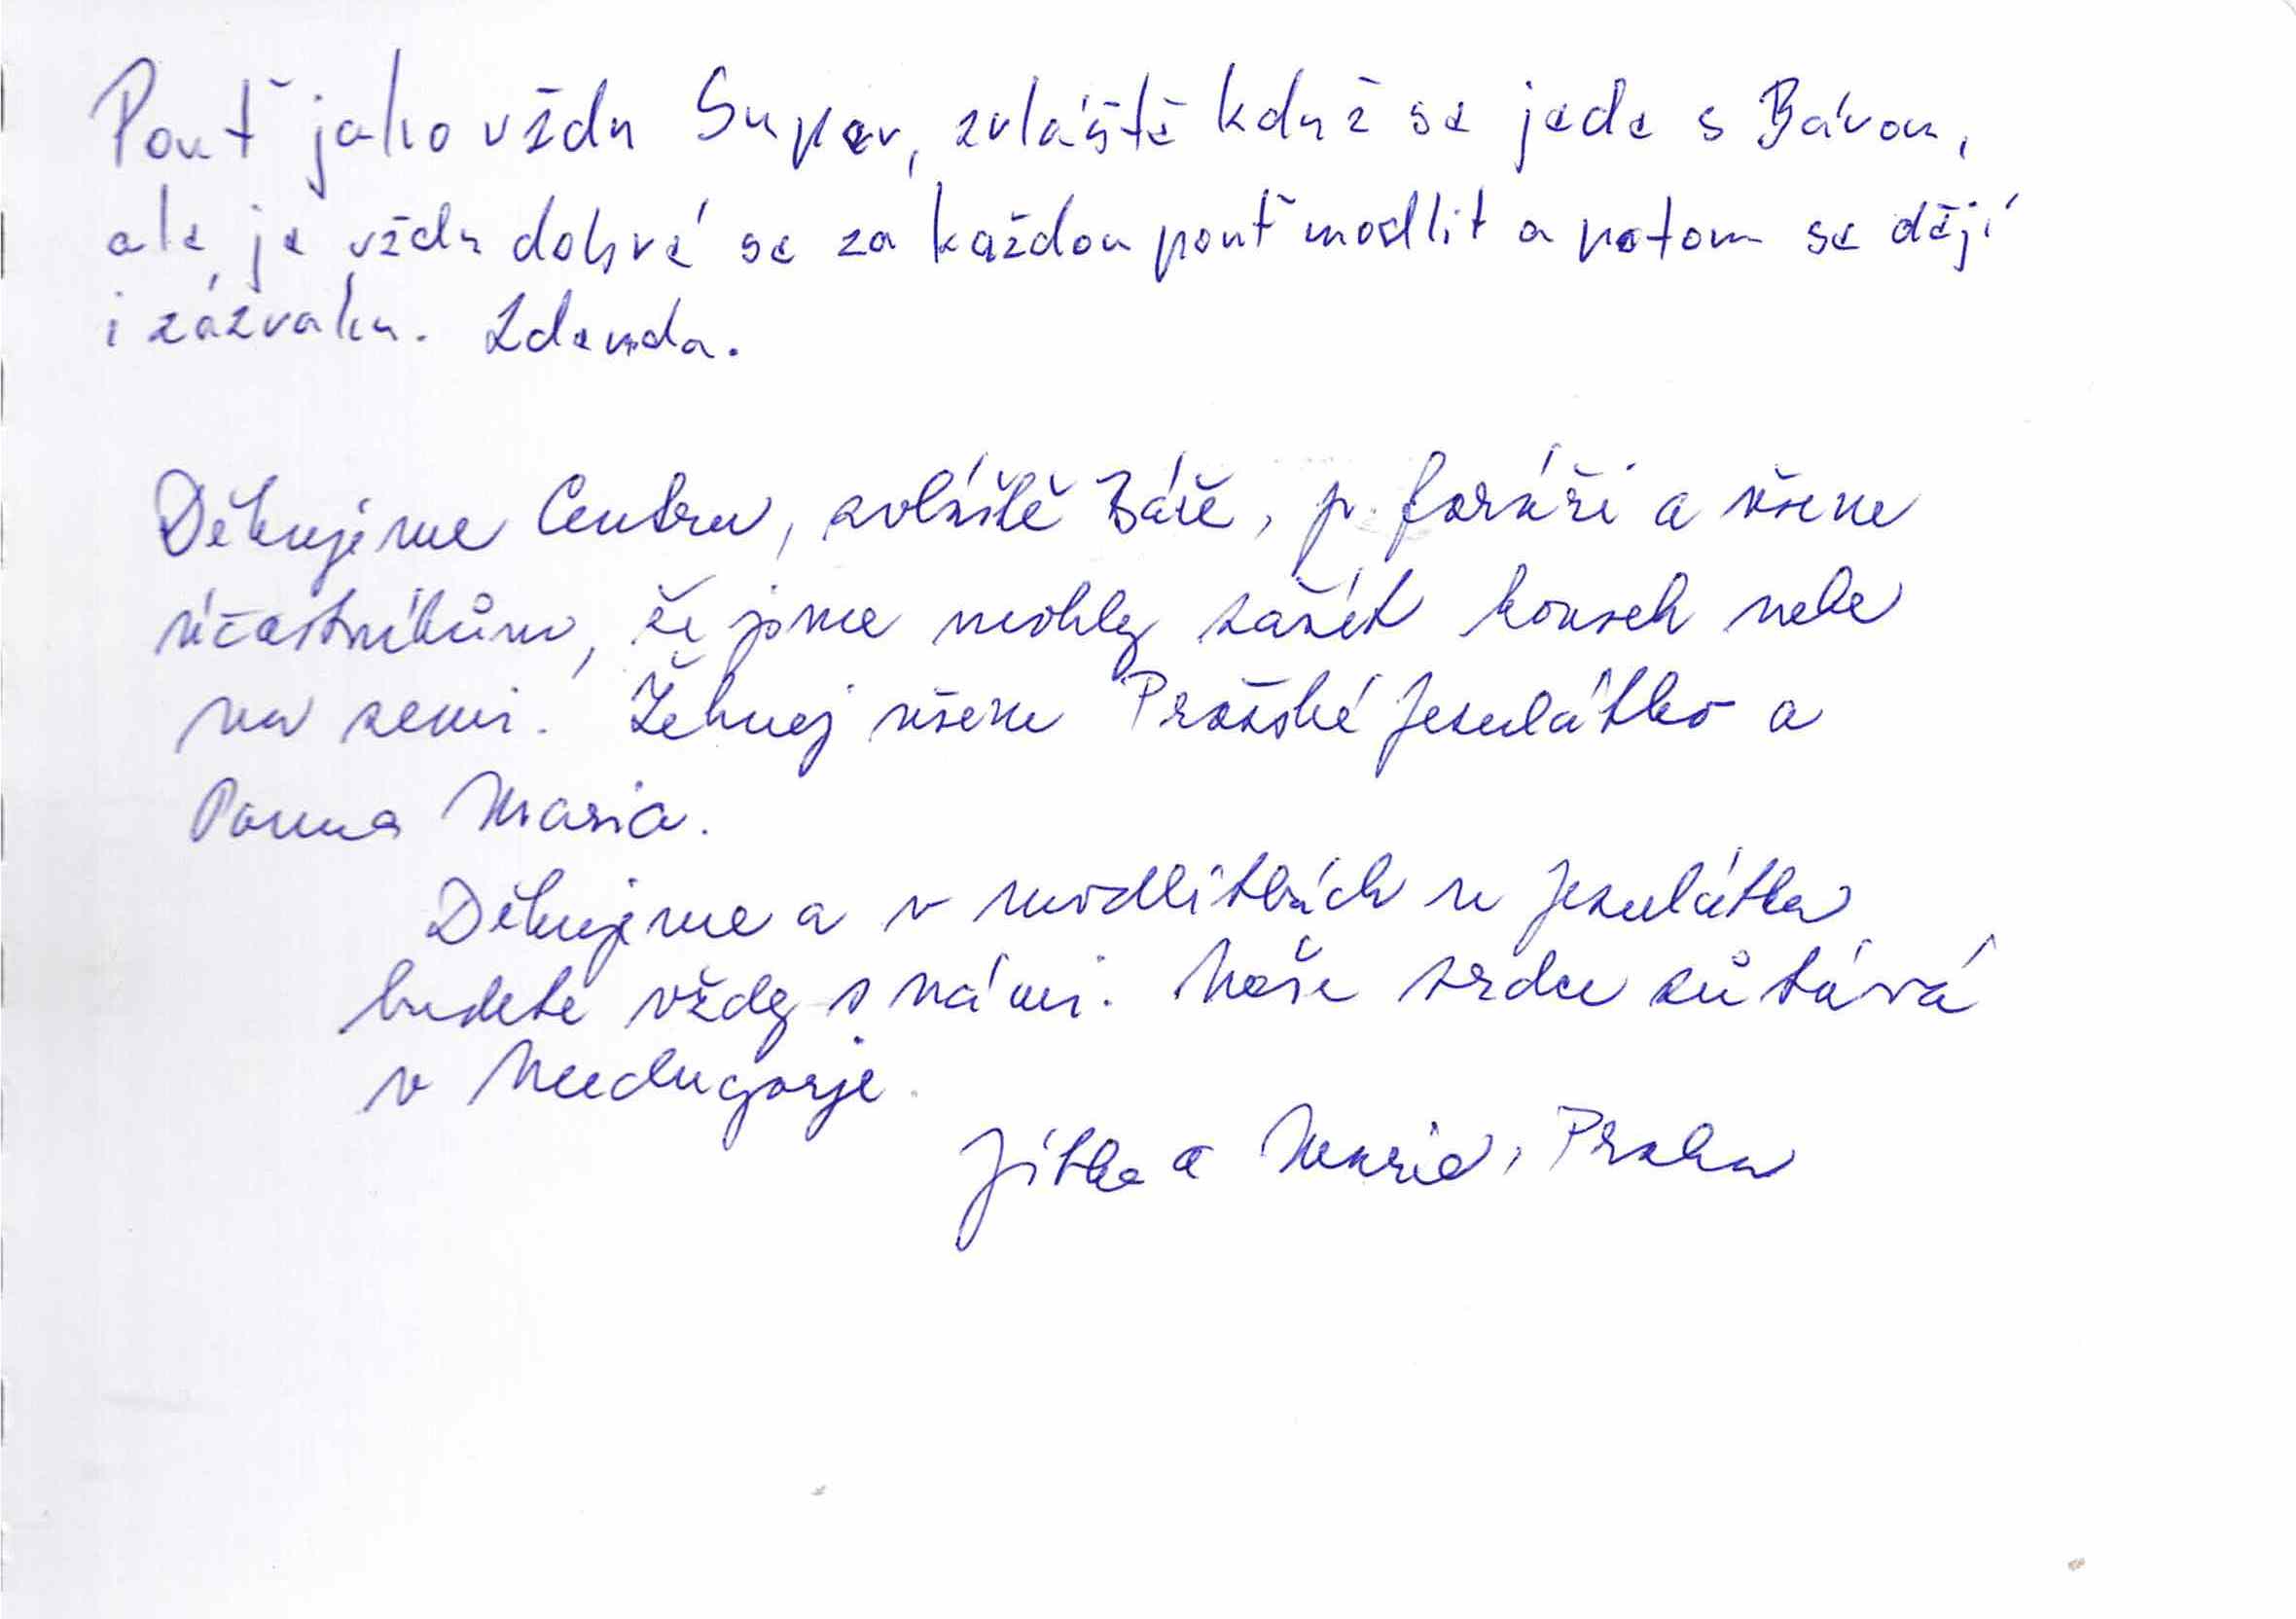 Pouť jako vždy Super, zvláště když se jede s Bárou,
ale je vždy dobré se za každou pouť modlit a potom se dějí
i zázraky. Zdenda.
Děkujeme Centru, zvláště Báře, p. faráři a všem
účastníkům, že jsme mohly zažít kousek nebe
na zemi. Žehnej všem Pražské Jezulátko a
Panna Maria.
Děkujeme a v modlitbách u Jezulátka
budete vždy s námi. Naše srdce zůstává
v Medugorje.
Jitka a Marie, Praha